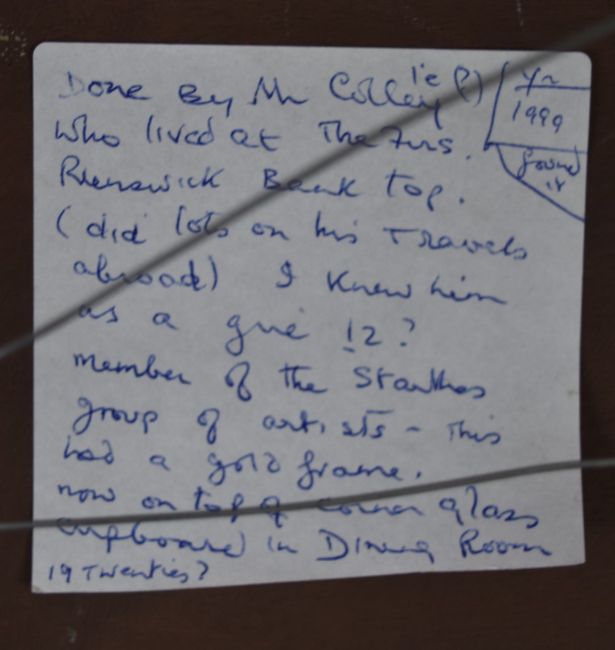 Done By Mr Colley 'ie (?)
who lived at The Firs.
Runswick Bank top.
(did lots on his Travels
abroad) I knew him
as a girl 12?
member of the Staithes
group of artists - This
had a gold frame.
now on top of corner glass
cupboard in Dining Room
19 Twenties?
Yr
1999
found
it